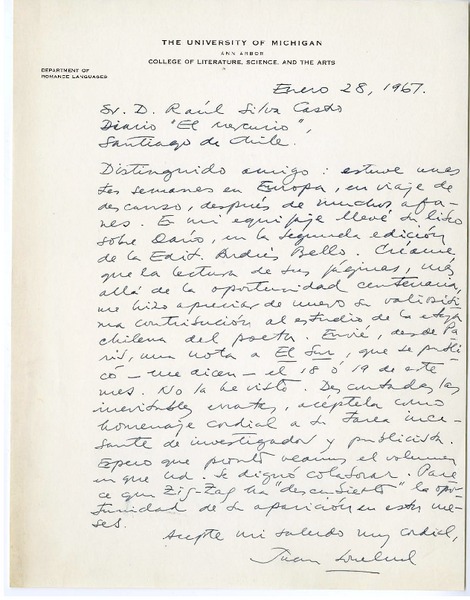 THE UNIVERSITY OF MICHIGAN
ANN ARBOR
COLLEGE OF LITERATURE, SCIENCE, AND THE ARTS
DEPARTMENT OF
ROMANCE LANGUAGES
Enero 28, 1967.
Sr. D. Raúl Silva Castro
Diario "El Mercurio",
Santiago de Chile.
Distinguido amigo: estuve unas
tres semanas en Europa, en viaje de
descanso, después de muchos afa-
nes. En mi equipaje llevé su libro
sobre Darío, en la segunda edición
de la Edit. Andrés Bello. Créame
que la lectura de sus páginas, más
allá de la oportunidad centenaria,
me hizo apreciar de nuevo su valiosísi-
ma contribución al estudio de la etapa
chilena del poeta. Envié, desde Pa-
rís, una nota a El Sur, que se publi-
có - me dicen - el 18 ó 19 de este
mes. No la he visto. Descontadas las
inevitables erratas, acéptela como
homenaje cordial a su tarea ince-
sante de investigador y publicista.
Espero que pronto veamos el volumen
en que Ud. se dignó colaborar. Pare-
ce que Zig-Zag ha "descubierto" la opor-
tunidad de su aparición en estos me-
ses.
Acepte mi saludo muy cordial,
Juan Loveluck